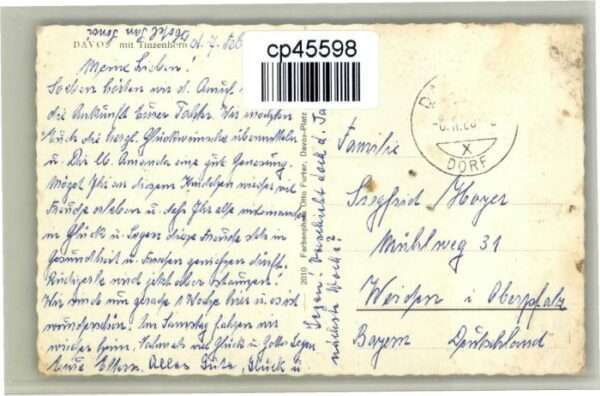 DAVOS mit Tinzenhorn
d. 7. Feb
cp45598
Meine Lieben!
Soeben hörten wir d. Anruf
die Ankunft Eurer Tochter. Wir möchten
Euch die herzl. Glückwünsche übermitteln
u. Dir lb. Amanda eine gute Genesung.
Möget Ihr an diesem Kindchen recht viel
Freude erleben u. daß Ihr alle miteinander
in Glück u. Segen diese Freude stets in
Gesundheit u. Frieden genießen dürft.
wird jetzt aber staunen!
Wir sind nun gerade 1 Woche hier u. es ist
wunderschön. Am Samstag fahren wir
wieder heim. Nochmals viel Glück u. Gottes Segen
Eure Eltern. Alles Gute, Glück u
Segen! doch d.
nächste Woche?
2010 Farbenphoto Otto Furter, Davos-Platz
DORF
X
Familie
Siegfried Hoyer
Mühlweg 31
Weiden i Oberpfalz
Bayern Deutschland